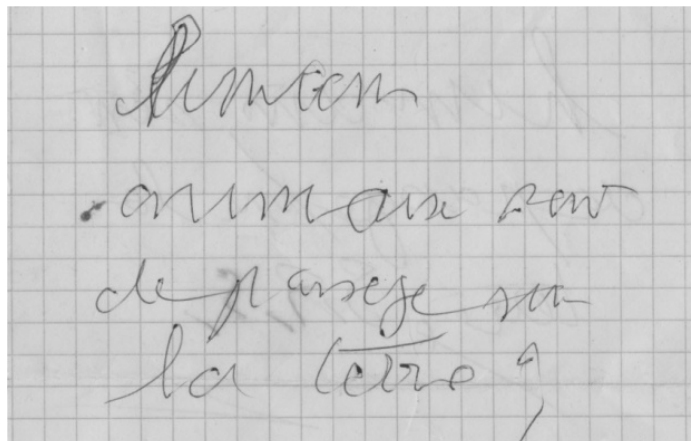 animaux sont
de passage sur
la terre ?